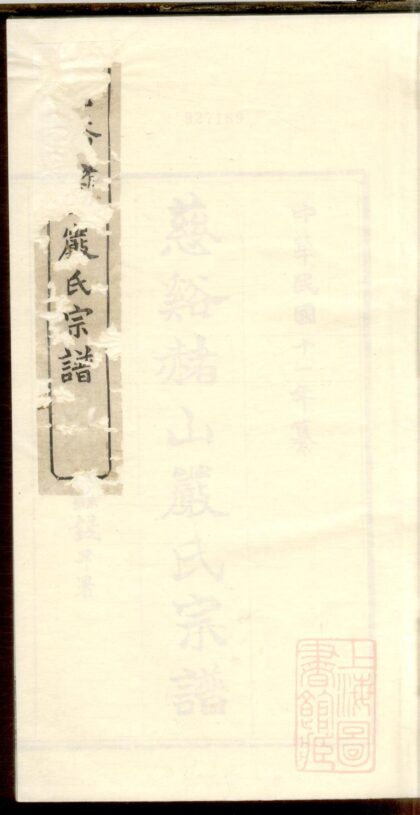 927189
中華民國十一年纂
慈谿赭山嚴氏宗譜
嚴氏宗譜
上海圖
書館